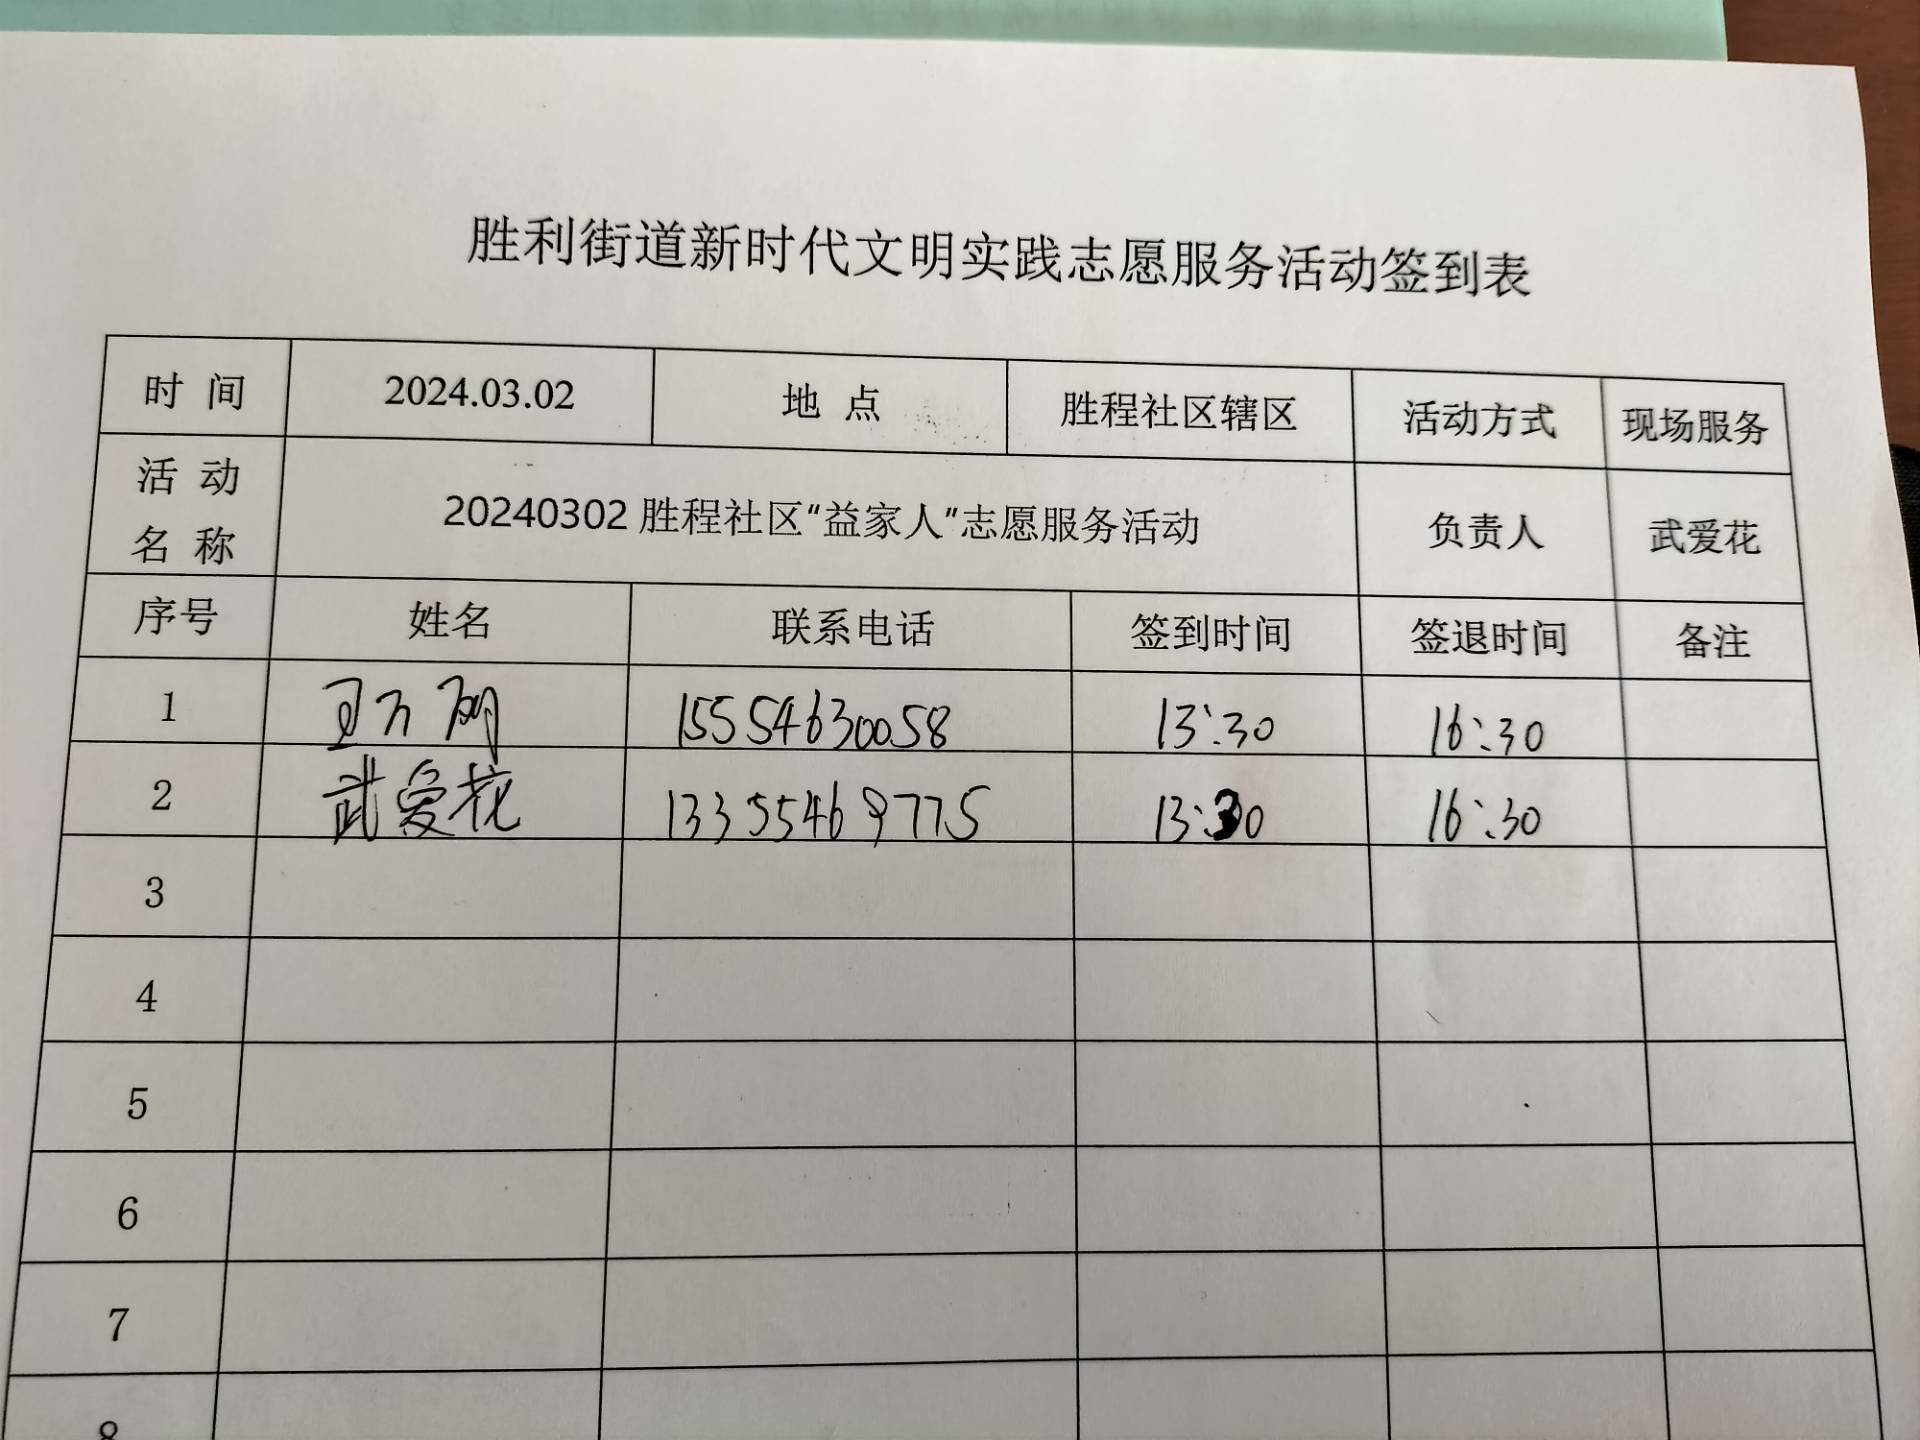 胜利街道新时代文明实践志愿服务活动签到表
时 间 2024.03.02 地 点 胜程社区辖区 活动方式 现场服务
活 动 名 称 20240302胜程社区“益家人”志愿服务活动 负责人 武爱花
序号 姓名 联系电话 签到时间 签退时间 备注
1 15554630058 13:30 16:30
2 武爱花 13355469775 13:30 16:30
3
4
5
6
7
8